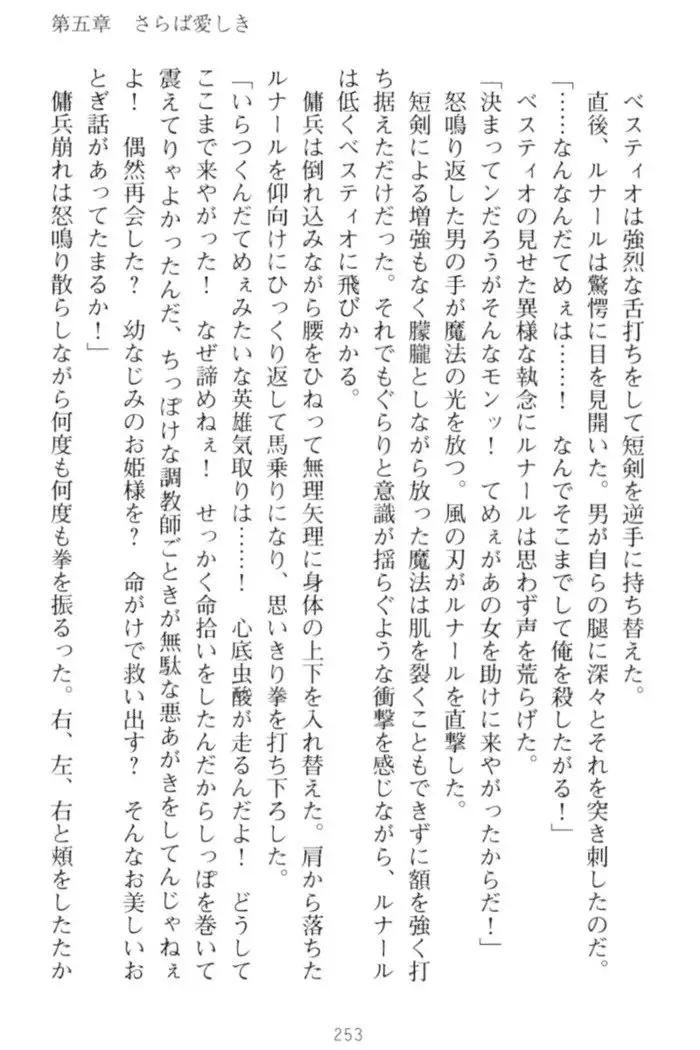 第五章　さらば愛しき
　ベスティオは強烈な舌打ちをして短剣を逆手に持ち替えた。
　直後、ルナールは驚愕に目を見開いた。男が自らの腿に深々とそれを突き刺したのだ。
「……なんなんだてめぇは……！　なんでそこまでして俺を殺したがる！」
　ベスティオの見せた異様な執念にルナールは思わず声を荒らげた。
「決まってンだろうがそんなモンッ！　てめぇがあの女を助けに来やがったからだ！」
　怒鳴り返した男の手が魔法の光を放つ。風の刃がルナールを直撃した。
　短剣による増強もなく朦朧としながら放った魔法は肌を裂くこともできずに額を強く打
ち据えただけだった。それでもぐらりと意識が揺らぐような衝撃を感じながら、ルナール
は低くベスティオに飛びかかる。
　傭兵は倒れ込みながら腰をひねって無理矢理に身体の上下を入れ替えた。肩から落ちた
ルナールを仰向けにひっくり返して馬乗りになり、思いきり拳を打ち下ろした。
「いらつくんだてめぇみたいな英雄気取りは……！　心底虫酸が走るんだよ！　どうして
ここまで来やがった！　なぜ諦めねぇ！　せっかく命拾いをしたんだからしっぽを巻いて
震えてりゃよかったんだ、ちっぽけな調教師ごときが無駄な悪あがきをしてんじゃねぇ
よ！　偶然再会した？　幼なじみのお姫様を？　命がけで救い出す？　そんなお美しいお
とぎ話があってたまるか！」
　傭兵崩れは怒鳴り散らしながら何度も何度も拳を振るった。右、左、右と頬をしたたか
253